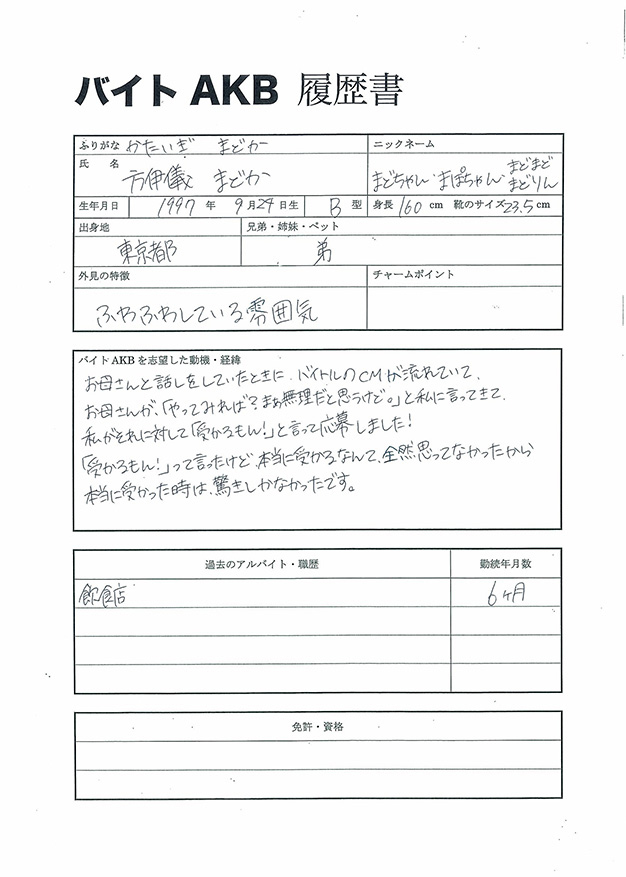 バイト AKB 履歴書
ふりがな かたいぎ まどか
ニックネーム
氏 名 方伊儀 まどか
まどちゃん まぽちゃん まどまど
まどりん
生年月日 1997 年 9月24日生 B 型 身長 160 cm 靴のサイズ 23.5 cm
出身地 兄弟・姉妹・ペット
東京都 弟
外見の特徴 チャームポイント
ふわふわしている雰囲気
バイトAKBを志望した動機・経緯
お母さんと話しをしていたときに、バイトルのCMが流れていて、
お母さんが、「やってみれば？まぁ無理だと思うけど。」と私に言ってきて、
私がそれに対して「受かるもん！」と言って応募しました！
「受かるもん！」って言ったけど、本当に受かるなんて、全然思ってなかったから
本当に受かった時は、驚きしかなかったです。
過去のアルバイト・職歴 勤続年月数
飲食店 6ヶ月
免許・資格